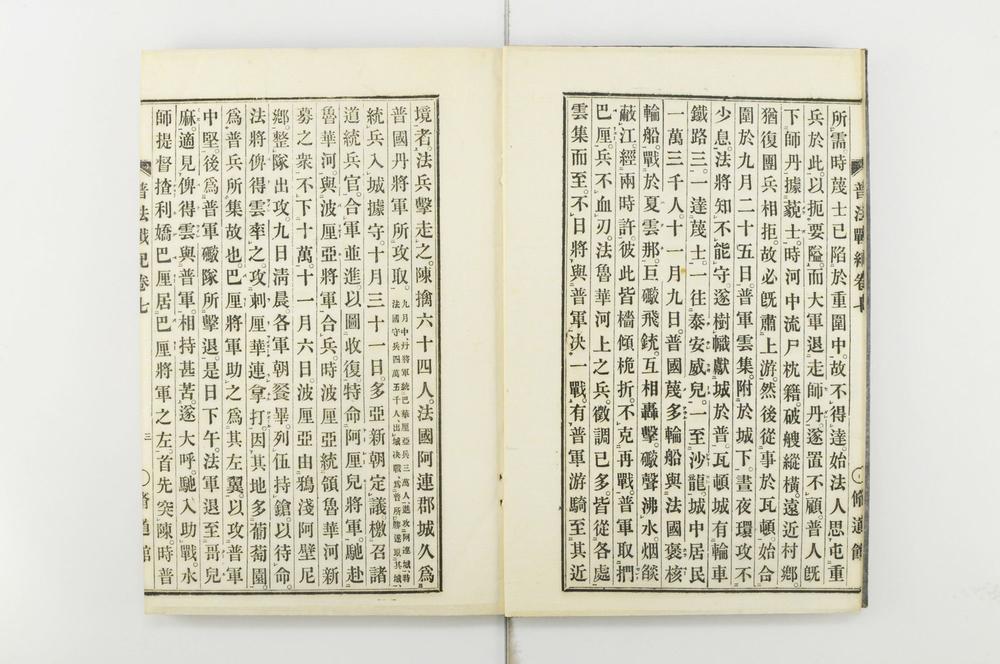 所需時蔑士已陷於重圍中。故不得達始法人思屯重
兵於此。以扼要隘。而大軍退走師丹。遂置不顧。普人旣
下師丹。據藐士。時河中流尸枕籍。破艘縱橫。遠近村鄉。
猶復團兵相拒。故必旣肅上游。然後從事於瓦頓。始合
圍於九月二十五日。普軍雲集。附於城下。晝夜環攻不
少息。法將知不能守。遂樹幟獻城於普。瓦頓城有輪車
鐵路三。一達蔑士。一往泰安威兒。一至沙龍。城中居民
一萬三千人。十一月九日。普國蔑多輪船與法國褒核
輪船。戰於夏雲那。巨礮飛銃。互相轟擊。礮聲沸水。烟燄
蔽江。經兩時許。彼此皆檣傾桅折。不克再戰。普軍取捫
巴厘。兵不血刃。法魯華河上之兵。徵調已多。皆從各處
雲集而至。不日將與普軍決一戰。有普軍游騎至其近
普法戰紀卷七
脩道館
境者。法兵擊走之。陳擒六十四人。法國阿連郡城久爲
普國丹將軍所攻取。九月中丹將軍統巴華厘亞兵三萬人進攻阿連城時法國守兵四萬五千人出城決戰爲普所勝遂取其城
統兵入城據守。十月三十一日。多亞新朝定議。檄召諸
道統兵官。合軍並進。以圖收復特命阿厘兒將軍。馳赴
魯華河。與波厘亞將軍合兵。時波厘亞統領魯華河新
募之衆。不下十萬。十一月六日。波厘亞由鴉淺阿壁尼
鄉。整隊出攻。九日淸晨。各軍朝餐畢。列伍持鎗。以待命。
法將俾得雲率之攻刺厘華連拿打。因其地多葡萄園。
爲普兵所集故也。巴厘將軍助之爲其左翼。以攻普軍
中堅。後爲普軍礮隊所擊退。是日下午。法軍退至哥兒
麻。適見俾得雲與普軍。相持甚苦。遂大呼。馳入助戰。水
師提督揸利嬌巴厘居巴厘將軍之左。首先突陳。時普
普法戰紀卷七
三
脩道館